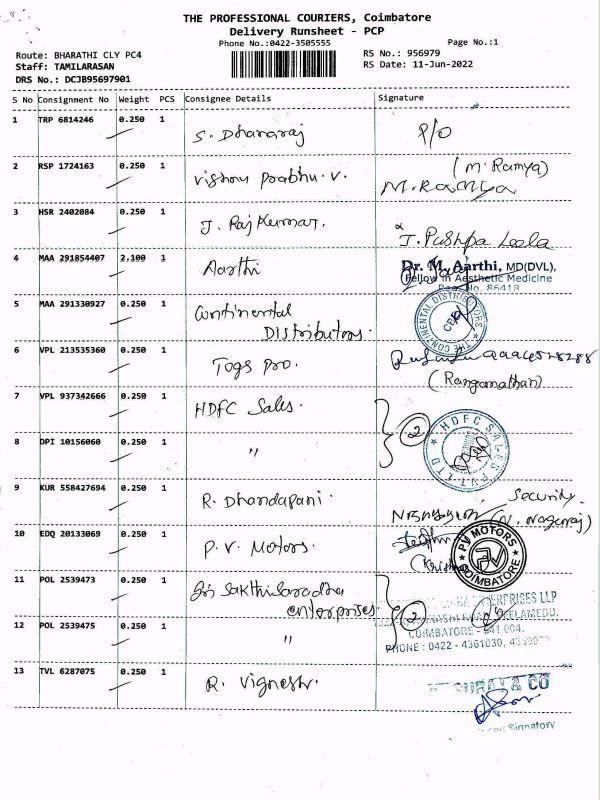 THE PROFESSIONAL COURIERS, Coimbatore
Delivery Runsheet - PCP
Phone No.:0422-3505555
Page No.:1
Route: BHARATHI CLY PC4
RS No.: 956979
Staff: TAMILARASAN
RS Date: 11-Jun-2022
DRS No.: DCJB95697901
S No Consignment No Weight PCS Consignee Details Signature
1 TRP 6814246 0.250 1 S. Dhanaraj P/O
2 RSP 1724163 0.250 1 Vishnu Prabhu. V. (M. Ramya)
M. Ramya
3 HSR 2402084 0.250 1 J. Raj Kumar. J. Pushpa Leela
4 MAA 291854407 2.100 1 Aarthi Dr. M. Aarthi, MD(DVL),
Fellow in Aesthetic Medicine
Reg. No. 86418
5 MAA 291330927 0.250 1 Continental
Distributors. THE CONTINENTAL DISTRIBUTORS
CBE
6 VPL 213535360 0.250 1 Togs Pro.
(Ranganathan)
7 VPL 937342666 0.250 1 HDFC Sales. 2 HDFC SALES PVT LTD
8 DPI 10156060 0.250 1 "
9 KUR 558427694 0.250 1 R. Dhandapani. Security.
(N. Nagaraj)
10 EDQ 20133069 0.250 1 P. V. Motors. PV MOTORS
PV
COIMBATORE
11 POL 2539473 0.250 1 Sri Sakthi
enterprises. 2 ENTERPRISES LLP
12 POL 2539475 0.250 1 " COIMBATORE - 641 004.
PHONE : 0422 - 4361030,
13 TVL 6287075 0.250 1 R. Vignesh. CO
Signatory